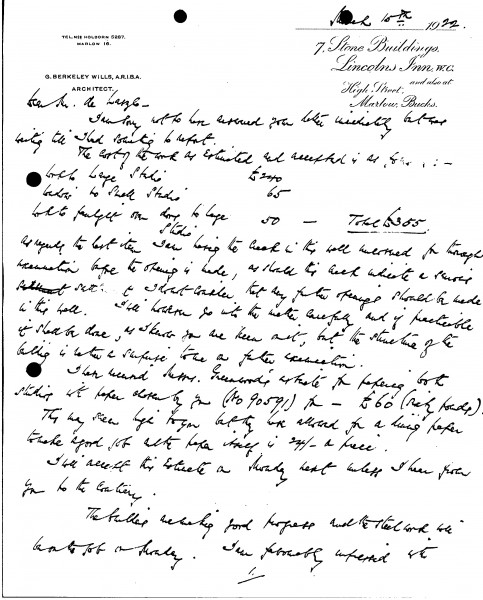 TEL. NOS HOLBORN 5287.
MARLOW 16.
March 10th 1922.
7, Stone Buildings,
Lincolns Inn, W.C.
and also at
High Street,
Marlow, Bucks.
G. BERKELEY WILLS, A.R.I.B.A.
ARCHITECT.
Dear Mr. de Laszlo -
I am sorry not to have answered your letter immediately but was
waiting till I had something to report.
The cost of the work as estimated and accepted is as follows :-
Work to Large Studio £240
to Small Studio 65
Work to door to large
Studio 50 — Total £355
as regards the last item I am having the crack in this wall
examination before the opening is made, as should this crack indicate a serious
I should consider that any further openings should be made
in this wall. I will however go into the matter carefully and if practicable
it shall be done, as I know you are keen on it, but the structure of the
building is rather a surprise to me on further examination.
I have received Messrs. Greenwoods estimate for papering both
studios with paper chosen by you (No 90591) for — £60 (sixty pounds).
This may seem high to you but they have allowed for a lining paper
to make a good job and the paper itself is 24/- a piece.
I will accept this estimate on Monday next unless I hear from
you to the contrary.
The building is making good progress and the steel work will
be on the job on Monday. I am favourably impressed with
1.